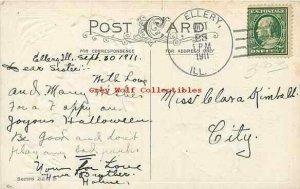 POST CARD
ELLERY,
PM
1911
ILL.
U.S. POSTAGE
FOR CORRESPONDENCE
FOR ADDRESS ONLY
Ellery Ill. Sept. 30 1911.
Dear Sister:
With Love
and Many
For a Happy and
Joyous Halloween.
Be good and don't
play any bad pranks
Your
Love
Brother
Miss Clara Kimball
City.
Grey Wolf Collectibles